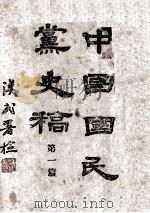 中國國民
黨史稿
第一篇
漢民署檢